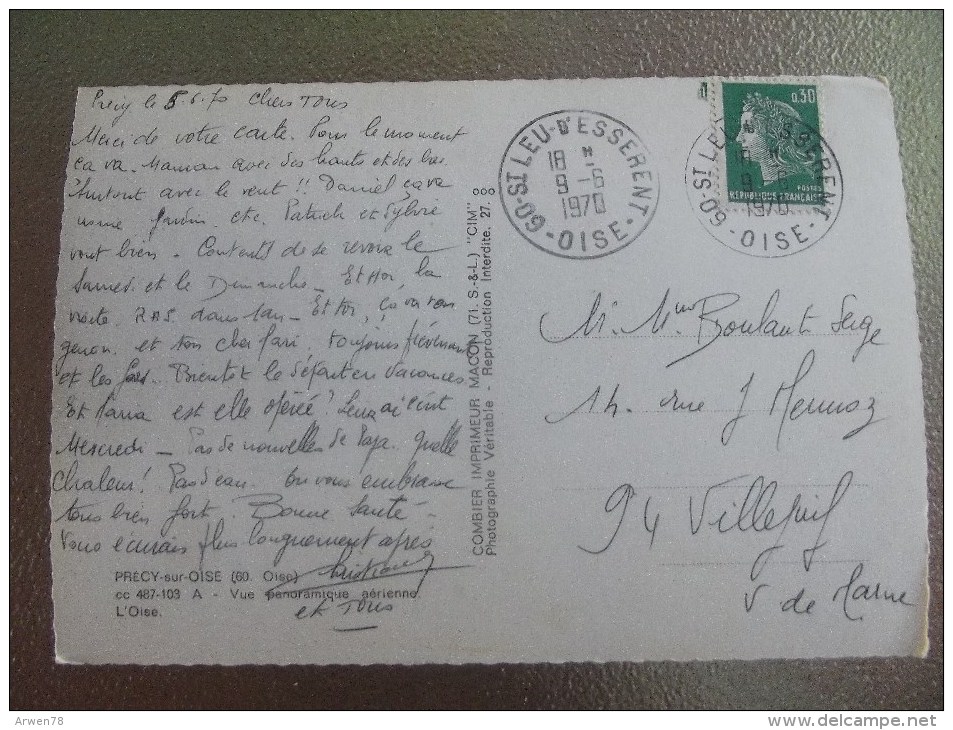 Précy le 8.6.70 Chers Tous
Merci de votre carte. Pour le moment
ça va. Maman avec des hauts et des bas
surtout avec le vent !! Daniel ça va
usine jardin etc. Patrick et Sylvie
vont bien. Contents de se revoir le
Samedi et le Dimanche - Et toi, la
R.A.S. dans - Et toi, ça va ton
genou. et ton cher toujours
et les Bientôt le départ en vacances
Et Mama est elle opérée ? Leur ai écrit
Mercredi - Pas de nouvelles de Papa. quelle
chaleur ! Pas d'eau. on vous embrasse
tous bien fort. Bonne Santé -
Vous écrirais plus longuement après
Christiane
et Tous
PRÉCY-sur-OISE (60. Oise)
cc 487-103 A - Vue panoramique aérienne.
L'Oise.
COMBIER IMPRIMEUR MACON (71. S.-&-L.) "CIM"
Photographie Véritable - Reproduction Interdite. 27.
60-ST LEU-D'ESSERENT
18 H
9 -6
1970
-OISE-
0,30
POSTES
REPUBLIQUE FRANÇAISE
60-ST LEU ESSERENT
18 H
9 6
1970
-OISE-
M. Mme Boulanti Serge
14. rue J Mermoz
94 Villejuif
V de Marne
Arwen78